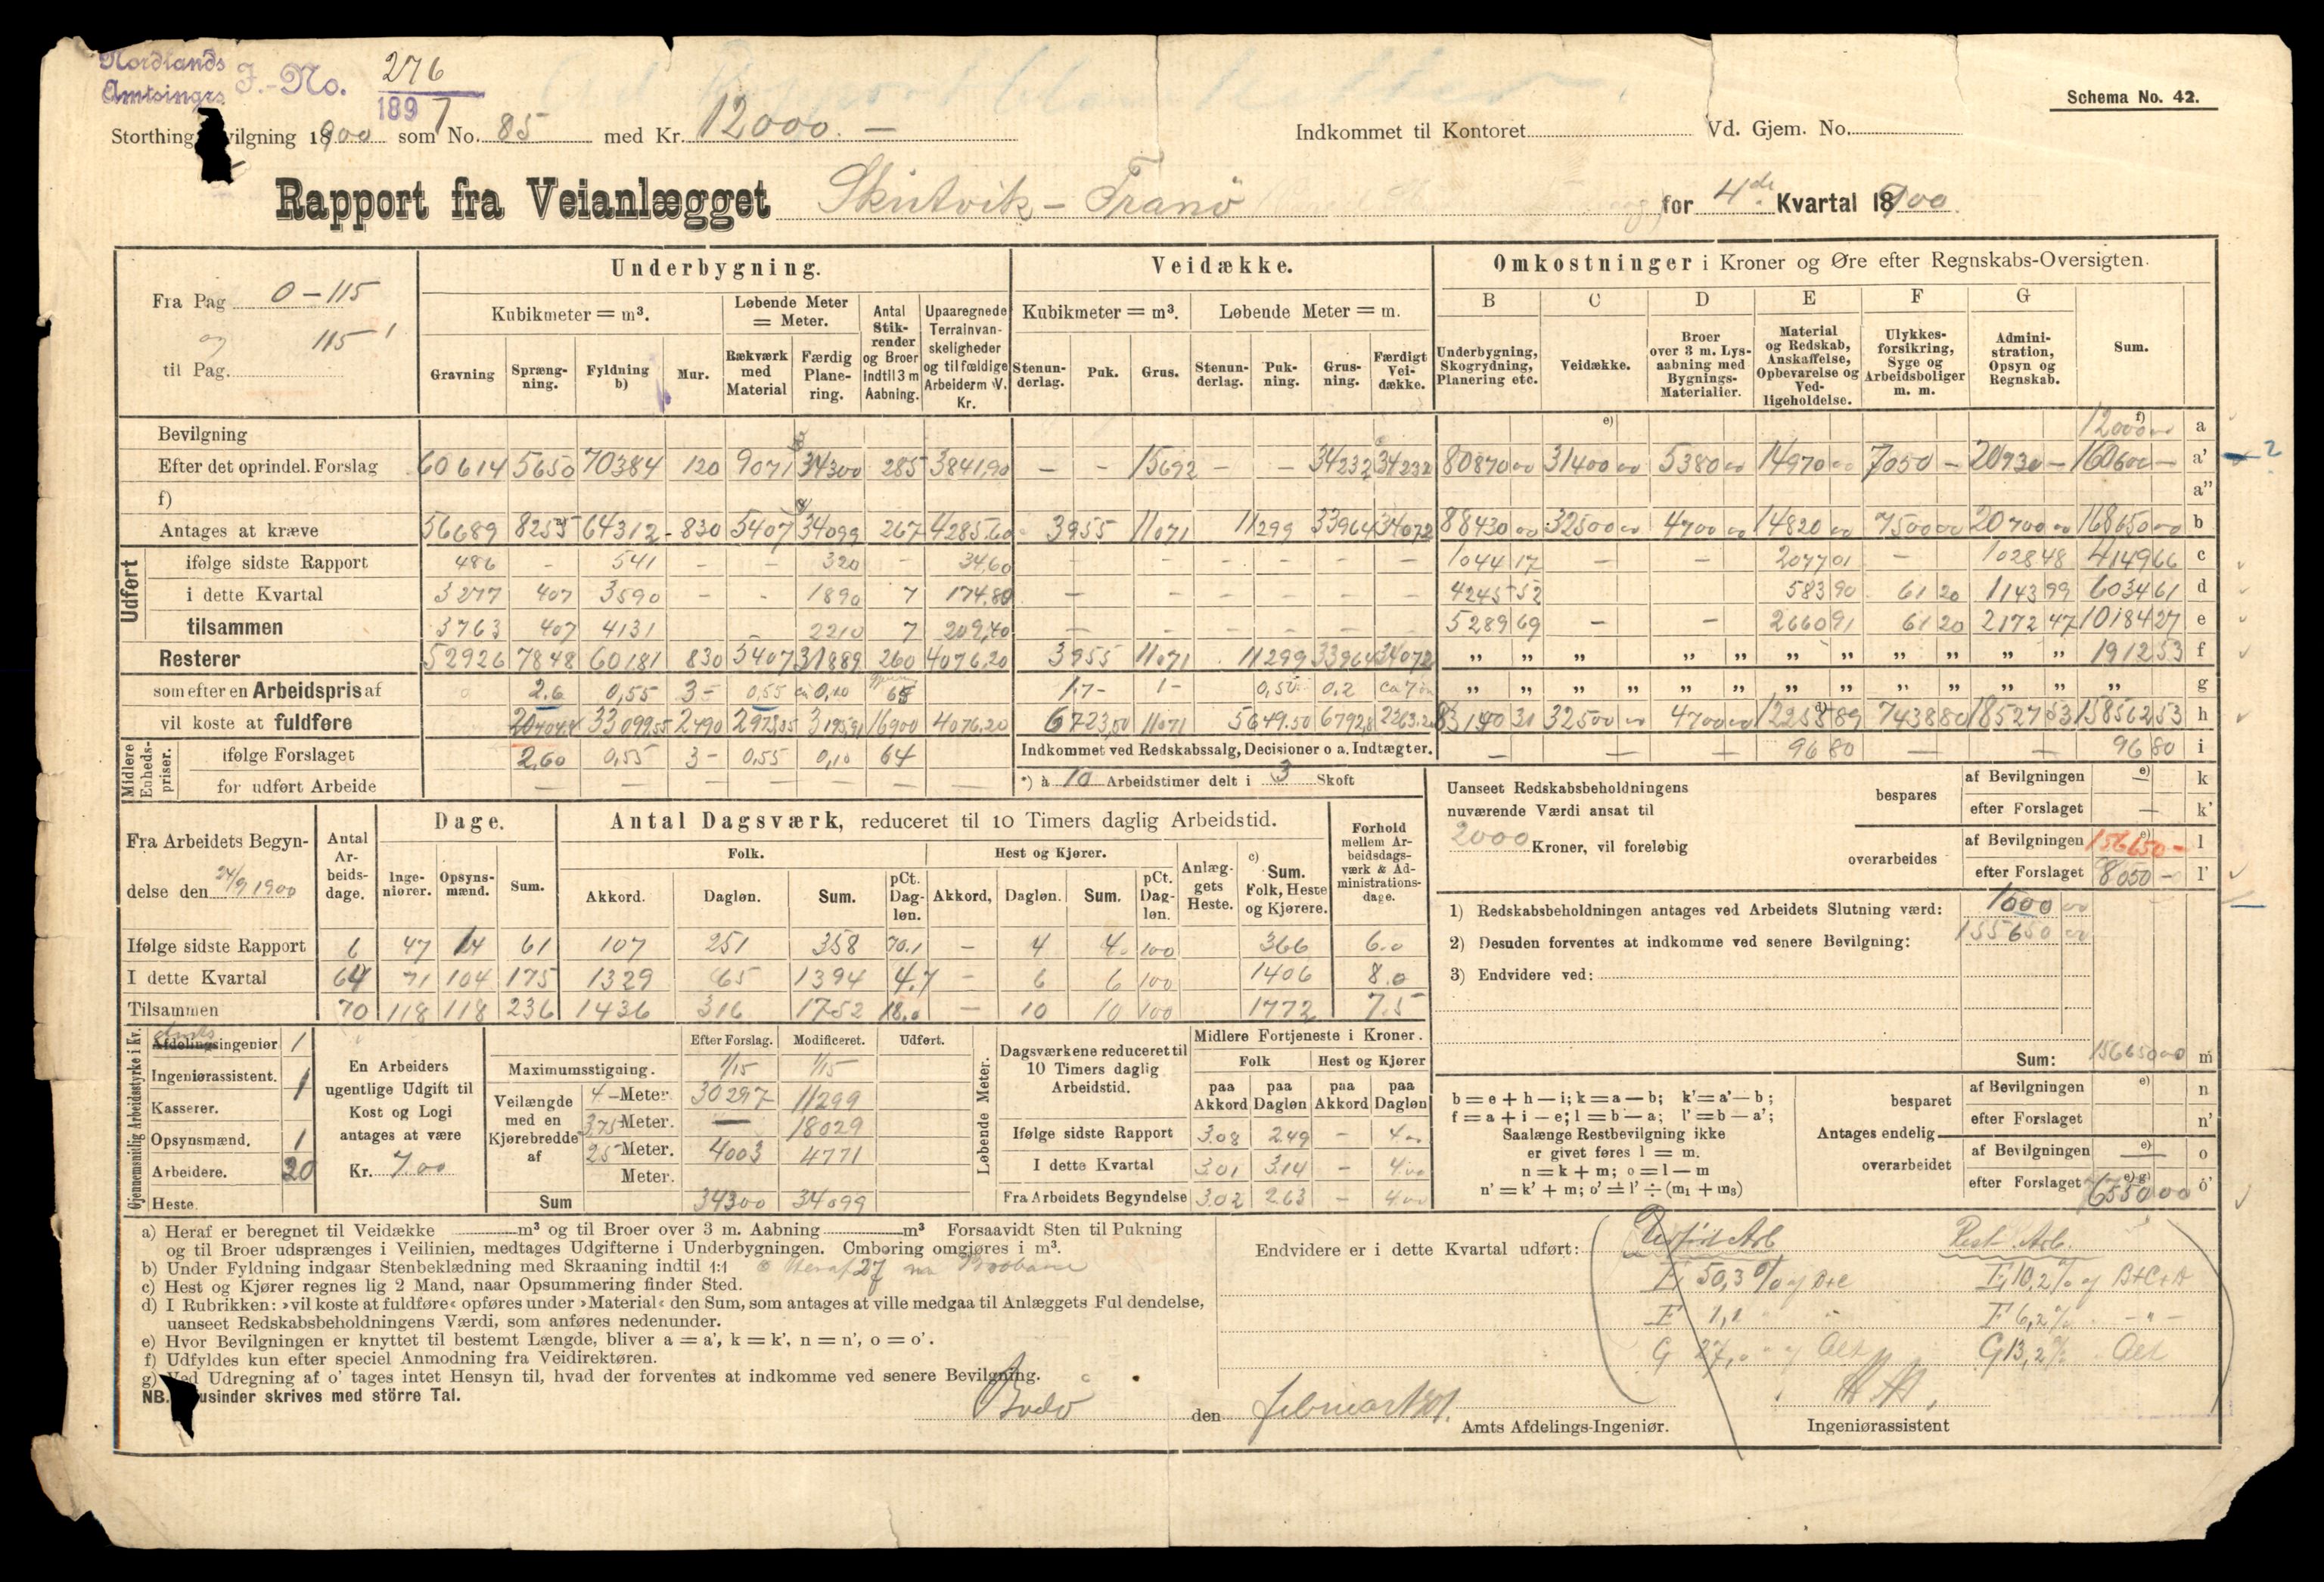 Nordlands
Amtsingrs J.-No. 276
1897
Schema No. 42.
Storthing vilgning 1900 som No. 85 med Kr. 12000.—
Indkommet til Kontoret Vd. Gjem. No.
Rapport fra Veianlægget Skutvik – Tranö for 4de Kvartal 1900.
Fra Pag 0 – 115
og 115
til Pag.
Underbygning. Veidække. Omkostninger i Kroner og Øre efter Regnskabs-Oversigten.
Kubikmeter = m³. Løbende Meter = Meter. Antal Stikrender og Broer indtil 3 m Aabning. Upaaregnede Terrainvanskeligheder og tilfældige Arbeider m. V. Kr.
Gravning Sprængning. Fyldning b) Mur. Rækværk med Material Færdig Planering.
Kubikmeter = m³. Løbende Meter = m.
Stenunderlag. Puk. Grus. Stenunderlag. Pukning. Grusning. Færdigt Veidække.
B C D E F G
Underbygning, Skogrydning, Planering etc. Veidække. Broer over 3 m. Lysaabning med Bygnings-Materialier. Material og Redskab, Anskaffelse, Opbevarelse og Vedligeholdelse. Ulykkesforsikring, Syge og Arbeidsboliger m. m. Administration, Opsyn og Regnskab. Sum.
Bevilgning e) f) 12000 00 a
Efter det oprindel. Forslag 60614 5650 70384 120 9071 34300 285 3841,90 — - 15692 - - 34232 34232 80870 00 31400 00 5380 00 14970 00 7050 — 20930 — 160600 — a' ?
f) a"
Antages at kræve 56689 8255 64312 - 830 5407 34099 267 4285,60 3955 11071 11299 33964 34072 88430 00 32500 00 4700 00 14820 00 7500 00 20700 00 168650 00 b
Udført
ifølge sidste Rapport 486 - 541 - - 320 - 34,60 - - - - - - - 1044 17 — — 2077 01 — 1028 48 4149 66 c
i dette Kvartal 3277 407 3590 - - 1890 7 174,80 — - - - - - - 4245 52 583 90 61 20 1143 99 6034 61 d
tilsammen 3763 407 4131 2210 7 209,40 — - - - - - - 5289 69 — — 2660 91 61 20 2172 47 10184 27 e
Resterer 52926 7848 60181 830 5407 31889 260 4076,20 3955 11071 11299 33964 34072 „ „ „ „ „ „ „ „ „ „ „ 1912 53 f
som efter en Arbeidspris af 2.6 0,55 3- 0,55 0,10 65 1.7- 1- 0,50 0.2 „ „ „ „ „ „ „ „ „ „ „ „ g
vil koste at fuldføre 33099,55 2490 2973,85 16900 4076,20 6723,50 11071 5649.50 6792,8 83140 31 32500 00 4700 00 d) 7438 80 18527 53 158562 53 h
Midlere Enhedspriser.
ifølge Forslaget 2,60 0,55 3- 0,55 0,10 64 Indkommet ved Redskabssalg, Decisioner o a. Indtægter. — — — 96 80 — — 96 80 i
for udført Arbeide — — — — — —
*) à 10 Arbeidstimer delt i 3 Skoft
Uanseet Redskabsbeholdningens nuværende Værdi ansat til 2000 Kroner, vil foreløbig
bespares af Bevilgningen e) — k
efter Forslaget — k'
overarbeides af Bevilgningen e) 156650 — l
efter Forslaget 8050 — l'
Fra Arbeidets Begyndelse den 24/9 1900
Antal Arbeidsdage. Dage. Ingeniører. Opsynsmænd. Sum.
Antal Dagsværk, reduceret til 10 Timers daglig Arbeidstid.
Folk. Hest og Kjører. Anlæggets Heste. c) Sum. Folk, Heste og Kjørere. Forhold mellem Arbeidsdagsværk & Administrationsdage.
Akkord. Dagløn. Sum. pCt. Dagløn. Akkord, Dagløn. Sum. pCt. Dagløn.
Ifølge sidste Rapport 6 47 14 61 107 251 358 70.1 — 4 4. 100 366 6.0
I dette Kvartal 64 71 104 175 1329 65 1394 4.7 — 6 6 100 1406 8.0
Tilsammen 70 118 118 236 1436 316 1752 18.0 — 10 10 100 1772 7.5
1) Redskabsbeholdningen antages ved Arbeidets Slutning værd: 1000 00
2) Desuden forventes at indkomme ved senere Bevilgning: 155650 00
3) Endvidere ved:
Sum: 156650 00 m
Gjennemsnitlig Arbeidsstyrke i Kv.
Afdelingsingeniør 1
Ingeniørassistent. 1
Kasserer.
Opsynsmænd. 1
Arbeidere. 20
Heste.
En Arbeiders ugentlige Udgift til Kost og Logi antages at være Kr. 7.00
Efter Forslag. Modificeret. Udført.
Maximumsstigning. 1/15 1/15
Veilængde med en Kjørebredde af
4 – Meter. 30297 11299
3.75 Meter. — 18029
2.5 Meter. 4003 4771
Meter.
Sum 34300 34099
Løbende Meter.
Dagsværkene reduceret til 10 Timers daglig Arbeidstid.
Midlere Fortjeneste i Kroner.
Folk Hest og Kjører
paa Akkord paa Dagløn paa Akkord paa Dagløn
Ifølge sidste Rapport 3.08 2.49 — 4.00
I dette Kvartal 3.01 3.14 — 4.00
Fra Arbeidets Begyndelse 3.02 2.63 — 4.00
b = e + h — i; k = a — b; k' = a' — b;
f = a + i — e; l = b — a; l' = b — a';
Saalænge Restbevilgning ikke er givet føres l = m.
n = k + m; o = l — m
n' = k' + m; o' = l' ÷ (m₁ + m₃)
Antages endelig
besparet af Bevilgningen e) n
efter Forslaget n'
overarbeidet af Bevilgningen e) — o
efter Forslaget e) g) 6550 00 o'
a) Heraf er beregnet til Veidække m³ og til Broer over 3 m. Aabning m³ Forsaavidt Sten til Pukning
og til Broer udsprænges i Veilinien, medtages Udgifterne i Underbygningen. Omboring omgjøres i m³.
b) Under Fyldning indgaar Stenbeklædning med Skraaning indtil 1:1
c) Hest og Kjører regnes lig 2 Mand, naar Opsummering finder Sted.
d) I Rubrikken: »vil koste at fuldføre« opføres under »Material« den Sum, som antages at ville medgaa til Anlæggets Ful dendelse,
uanseet Redskabsbeholdningens Værdi, som anføres nedenunder.
e) Hvor Bevilgningen er knyttet til bestemt Længde, bliver a = a', k = k', n = n', o = o'.
f) Udfyldes kun efter speciel Anmodning fra Veidirektøren.
g) Ved Udregning af o' tages intet Hensyn til, hvad der forventes at indkomme ved senere Bevilgning.
NB. usinder skrives med större Tal.
Endvidere er i dette Kvartal udført:
Udført Arb Rest Arb.
E 50,3 % af B+C E 10,2 % af B+C+D
F 1,1 F 6,2 % - " -
G 27,0 G 13,2 %
Bodö den februar 1901.
Amts Afdelings-Ingeniør. Ingeniørassistent